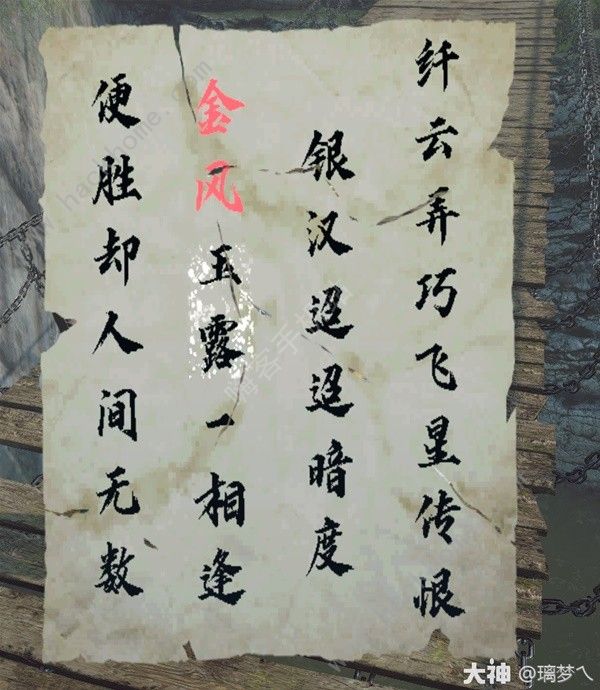 纤云弄巧飞星传恨
银汉迢迢暗度
金风玉露一相逢
便胜却人间无数
嗨客手
大神 @璃梦ヘ